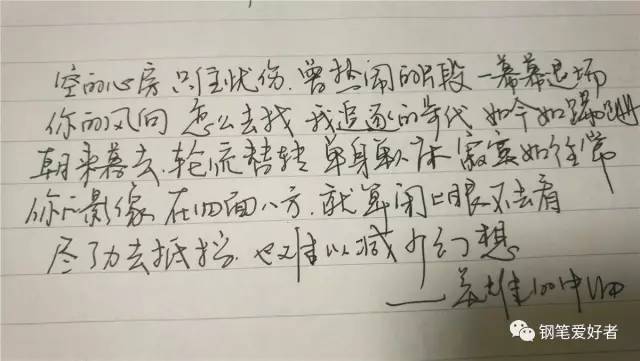 空的心房 只住忧伤.曾热闹的片段 一幕幕退场
你的风向 怎么去找 我追逐的年代 如今如踉跄
朝来暮去.轮流替转 单身单人床 寂寞如往常
你的影像 在四面八方.就算闭上眼不去看
尽了力去抵挡.也难以减少幻想
钢笔爱好者